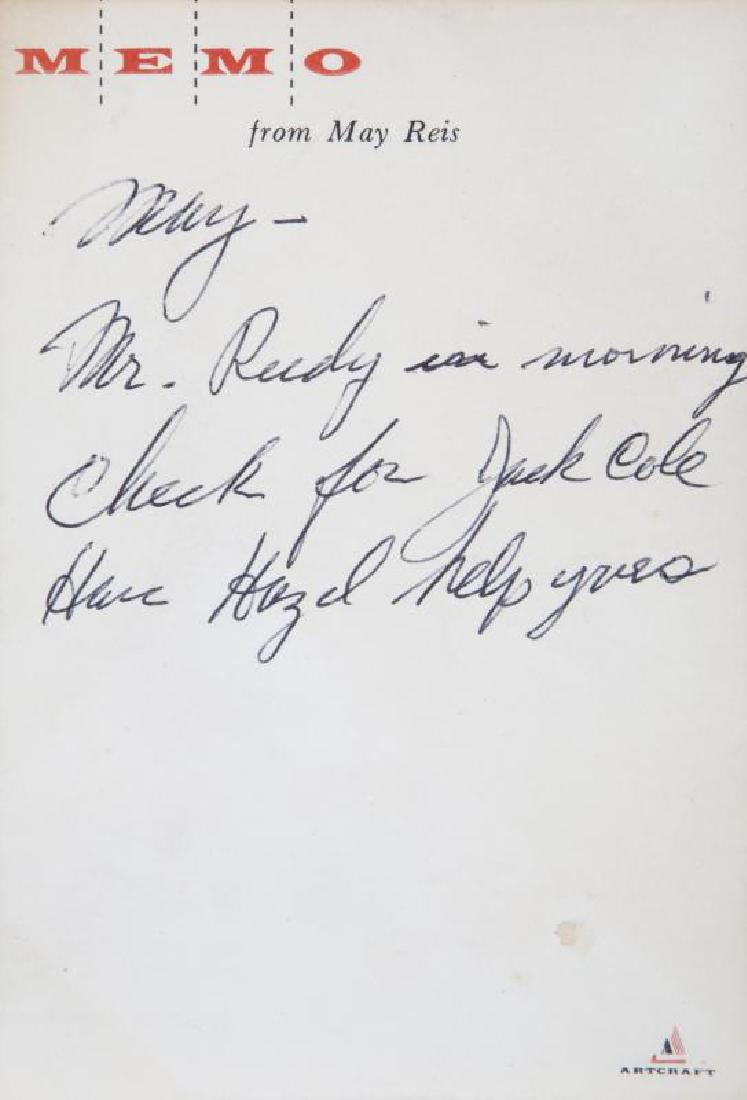 MEMO
from May Reis
May –
Mr. Rudy in morning
Check for Jack Cole
Have Hazel help yves
ARTCRAFT